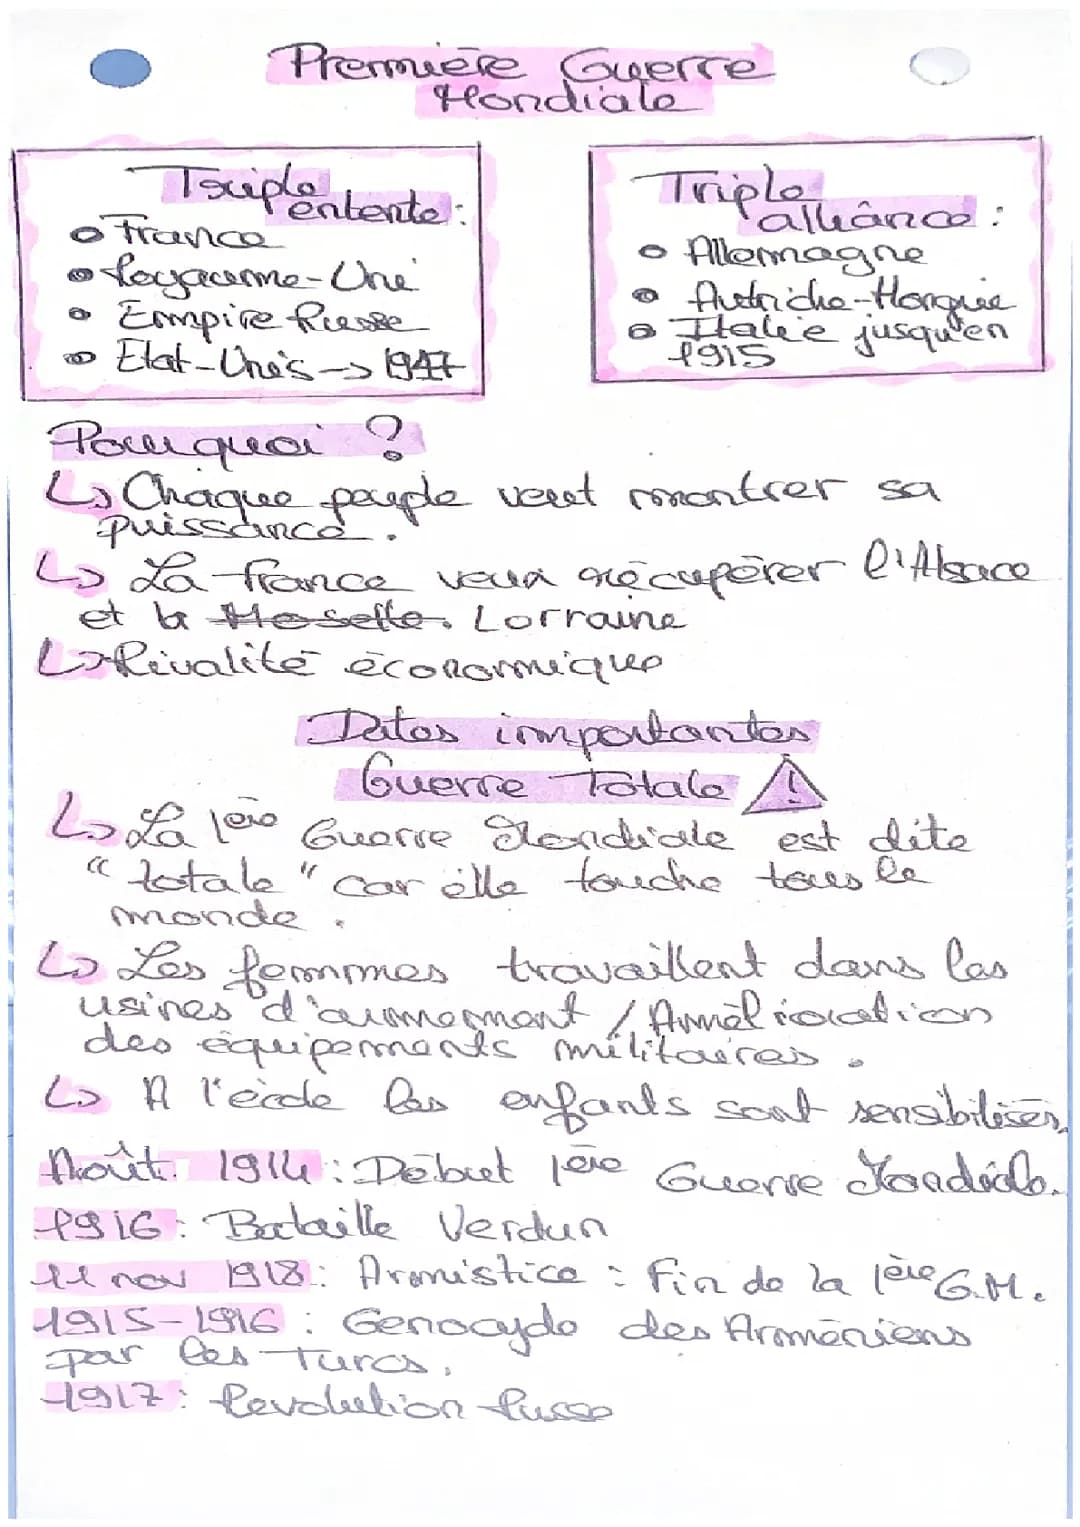 Première Guerre
Mondiale
Triple
entente :
France
Royaume-Uni
Empire Russe
Etat-Unis -> 1947
Triple
alliance :
Allemagne
Autriche-Hongrie
Italie jusqu'en
1915
Pourquoi ?
↳ Chaque peuple veut montrer sa
puissance.
↳ La France veux récupérer l'Alsace
et la Moselle. Lorraine
↳ Rivalité économique
Dates importantes
Guerre Totale !
↳ La 1ère Guerre Mondiale est dite
"totale" car elle touche tous le
monde.
↳ Les femmes travaillent dans les
usines d'armement / Amélioration
des équipements militaires.
↳ A l'école les enfants sont sensibilisés.
Août 1914 : Début 1ère Guerre Mondiale.
1916 : Bataille Verdun
11 nov 1918 : Armistice : Fin de la 1ère G.M.
1915-1916 : Genocyde des Arméniens
par les Turcs.
1917 : Revolution Russe